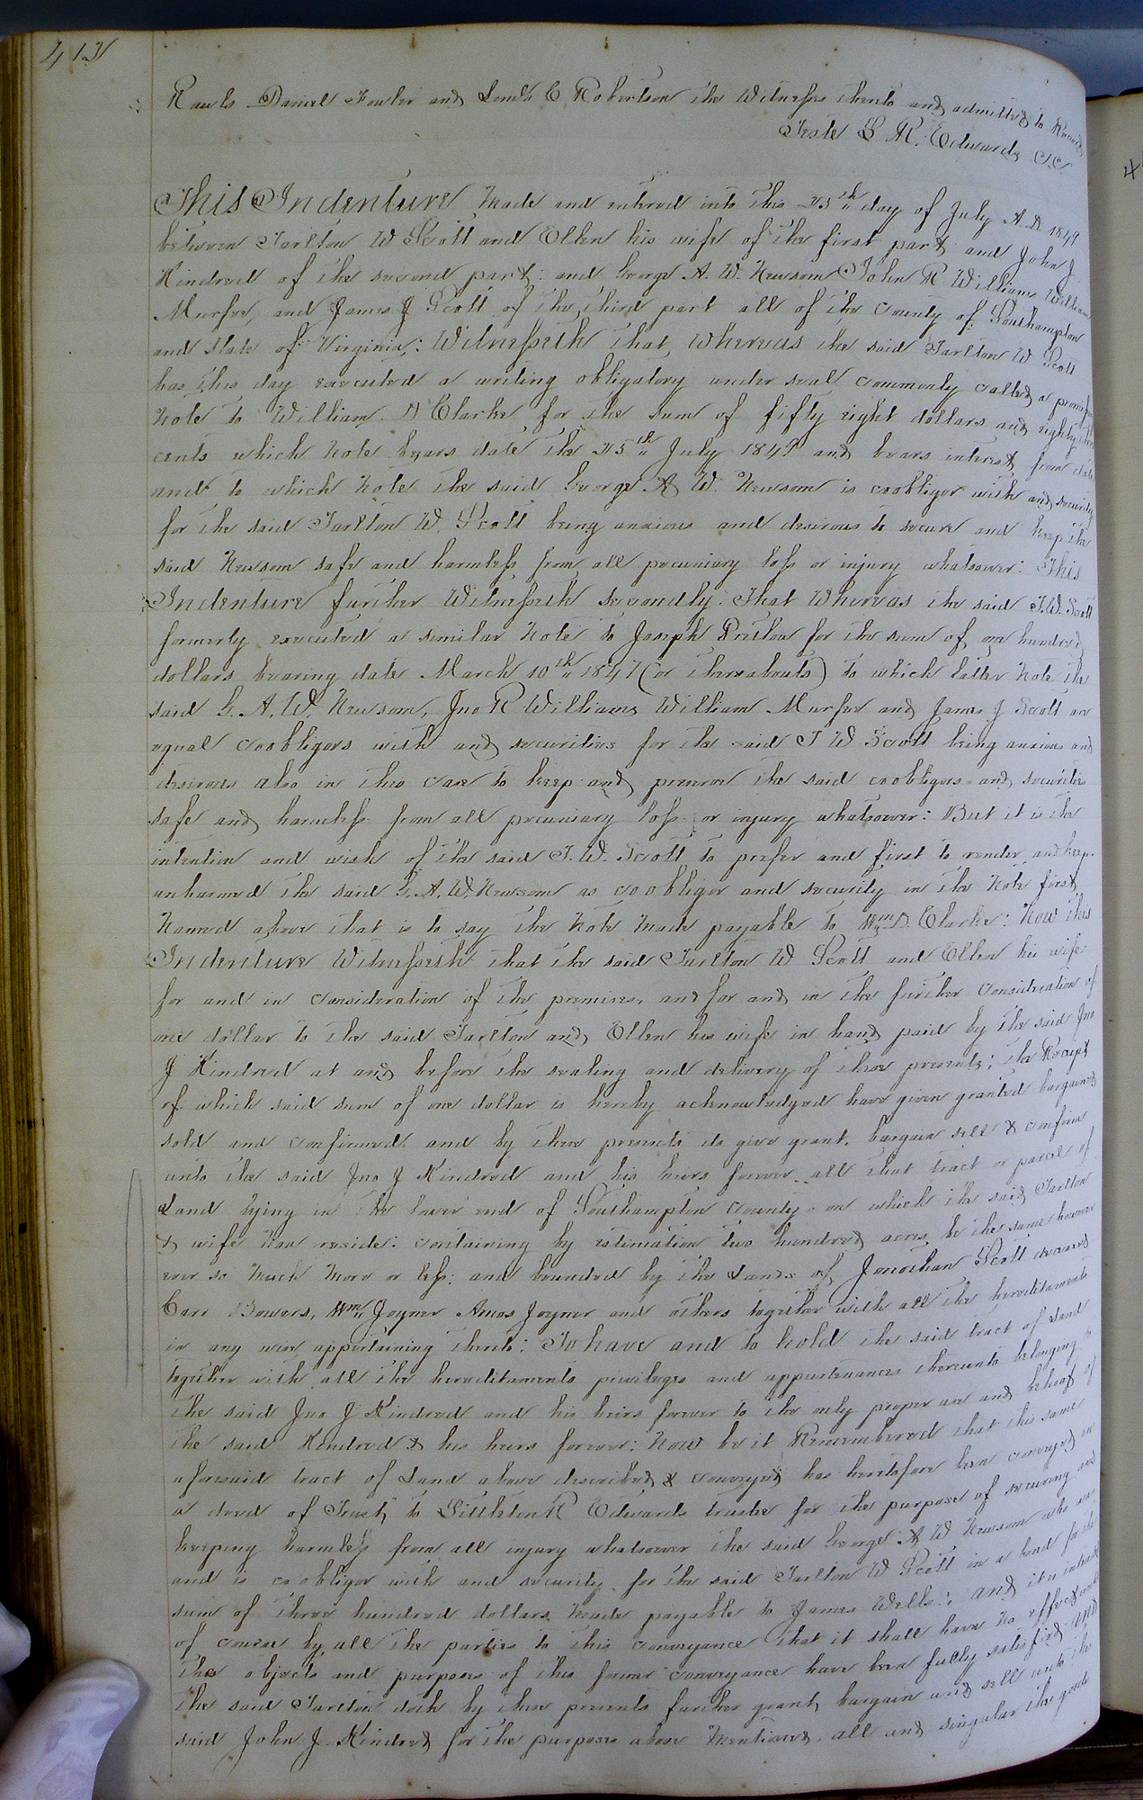 413
Rawls Daniel Fowler and Lem'l C Robertson the Witnesses thereto and admitted to Record
Teste L R. Edwards C.C.
This Indenture Made and entered into this 25th day of July A.D. 1849
between Tarlton W Scott and Ellen his wife of the first part, and John J
Kindred of the second part: and George A. W. Newsom John R. Williams William
Murfee, and James J Scott of the third part all of the County of Southampton
and State of Virginia: Witnesseth That, Whereas the said Tarlton W Scott
has this day executed a writing obligatory under seal commonly called a promissory
Note to William D Clarke for the sum of fifty eight dollars and eighty
cents which Note bears date the 25th July 1849 and bears interest from date
and to which Note the said George A W. Newsom is coobligor with and security
for the said Tarlton W. Scott being anxious and desirous to secure and keep the
said Newsom safe and harmless from all pecuniary loss or injury whatsoever: This
Indenture further Witnesseth secondly. That Whereas the said T.W. Scott
formerly executed a similar Note to Joseph Pretlow for the sum of one hundred
dollars bearing date March 10th 1847 (or thereabouts) to which latter Note the
said G. A. W. Newsom, Jno R Williams William Murfee and James J Scott are
equal coobligors with and securities for the said T W Scott being anxious and
desirous also in this case to keep and preserve the said coobligors and securities
safe and harmless from all pecuniary loss or injury whatsoever: But it is the
intention and wish of the said T. W. Scott to prefer and first to render and keep
unharmed the said G. A. W. Newsom as coobligor and security in the Note first
Named above that is to say the Note Made payable to Wm D. Clarke: Now this
Indenture Witnesseth that the said Tarlton W Scott and Ellen his wife
for and in consideration of the premises, and for and in the further consideration of
one dollar to the said Tarlton and Ellen his wife in hand paid by the said Jno
J Kindred at and before the sealing and delivery of these presents; the Receipt
of which said sum of one dollar is hereby acknowledged have given granted bargained
sold and confirmed and by these presents do give grant, bargain sell & confirm
unto the said Jno J Kindred and his heirs forever all that tract or parcel of
Land lying in the lower end of Southampton County on which the said Tarlton
& wife Now reside: containing by estimation two hundred acres, be the same however
ever so Much More or less: and bounded by the Lands of, Jonathan Scott deceased
Carr Bowers, Wm Joyner Amos Joyner and others together with all the hereditaments
in any wise appertaining thereto: To have and to hold the said tract of Land
together with all the hereditaments privileges and appurtenances thereunto belonging to
the said Jno J Kindred and his heirs forever to the only proper use and behoof of
the said Kindred & his heirs forever: Now be it Remembered that this same
aforesaid tract of Land above described & conveyed has heretofore been conveyed in
a deed of Trust, to Littleton R Edwards trustee for the purpose of securing and
keeping harmless from all injury whatsoever the said George A W Newsom who was
and is coobligor with and security for the said Tarlton W Scott in a bond for the
sum of three hundred dollars Made payable to James Wells: And it is
of course by all the parties to this conveyance that it shall have No effect until
the objects and purposes of this former conveyance have been fully satisfied. And
the said Tarlton doth by these presents further grant, bargain and sell unto the
said John J Kindred for the purposes above Mentioned all and singular the goods